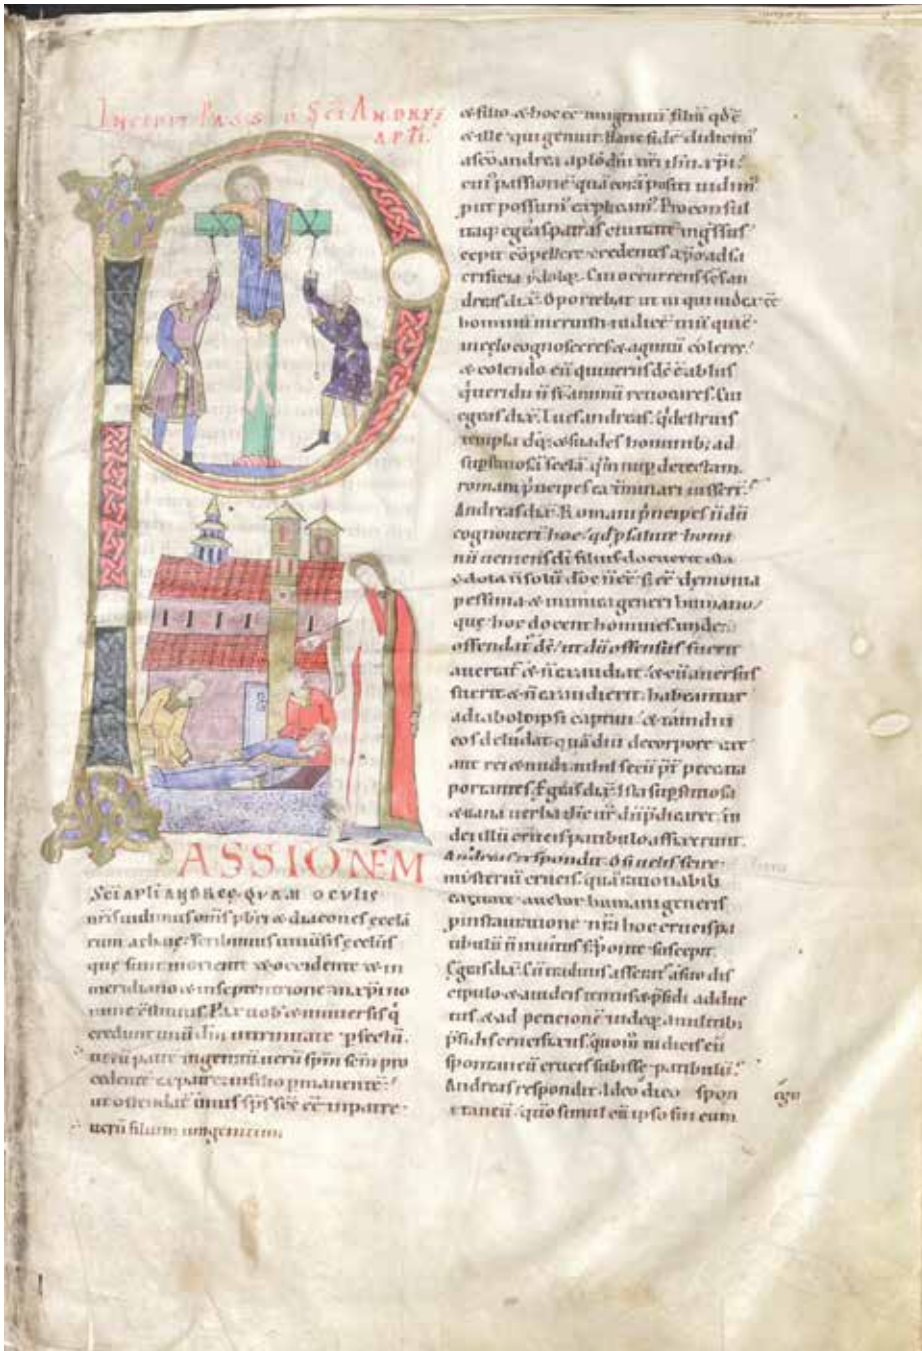 INCIPIT PASSIO SCI ANDREE
APLI.
PASSIONEM
SCI APLI ANDREE. QVAM OCVLIS
nris uidimus oms pbri & diacones eccla
rum achaie. scribimus uniuersis ecclis
que sunt in oriente & occidente & in
meridiano & in septentrione. in xpi no
mine Pax uob & uniuersis q
credunt unu dm in trinitate
ueru patre ingenitu. ueru spm scm pro
cedente ex patre. in filio pmanente.
ut ostendat unus sps scs ee in patre
ueru filium unigenitum.
& filio & hoc ee unigenitu filiu qd e
& ille qui genuit. Hanc fide didicim
a sco andrea aplo dni nri ihu xpi.
cui passione qua cora positi uidim
put possum explicam. Proconsul
itaq egeas patras ciuitate ingssus
cepit copellere credentes xpo ad sa
crificia ydoloz. Cui occurrens scs an
dreas dix. Oportebat ut tu qui iudex ee
hominu meruisti. iudice tuu qui e
in celo cognosceres & agnitu coleres.
& colendo eu qui uerus ds e ab his
q ueri du n st animu reuocares. Cui
egeas dix. Tu es andreas. q destruis
templa & suades hominib; ad
supstitiosa secta. q nup detectam
romani pncipes exterminari iusser.
Andreas dix. Romani pncipes n du
cognouer hoc. qd p salute homi
nu ueniens di filius docuerit. ista
ydola n solu dos n ee. s; ee demonia
pessima & inimica generi humano.
que hoc docent homines unde
offendat ds. ut du offensus fuerit
auertat & n exaudiat. & cu auersus
fuerit & n exaudierit. habeantur
a diabolo ipsi captiui. & tamdiu
eos deludat. qua diu de corpore exe
ant rei & nudi. nihil secu pt peccata
portantes. Egeas dix. Ista supstitiosa
& uana uerba dum ihs ur pdicaret. in
dei illu crucis patibulo affixerunt.
Andreas respondit. O si uelis scire
misteriu crucis. qua rationabili
caritate auctor humani generis
p instauratione nra hoc crucis pa
tibulu n inuitus s; sponte suscepit.
Egeas dix. Cu traditus asserat a suo dis
cipulo & a iudeis tentus & psidi adduc
tus. & ad peticione iudeoz a militib;
psidis crucifixus. quom tu dicis eu
spontaneu crucis subisse patibulu.
Andreas respondit. Ideo dico spon
taneu. quo simul cu ipso fui cum
ego